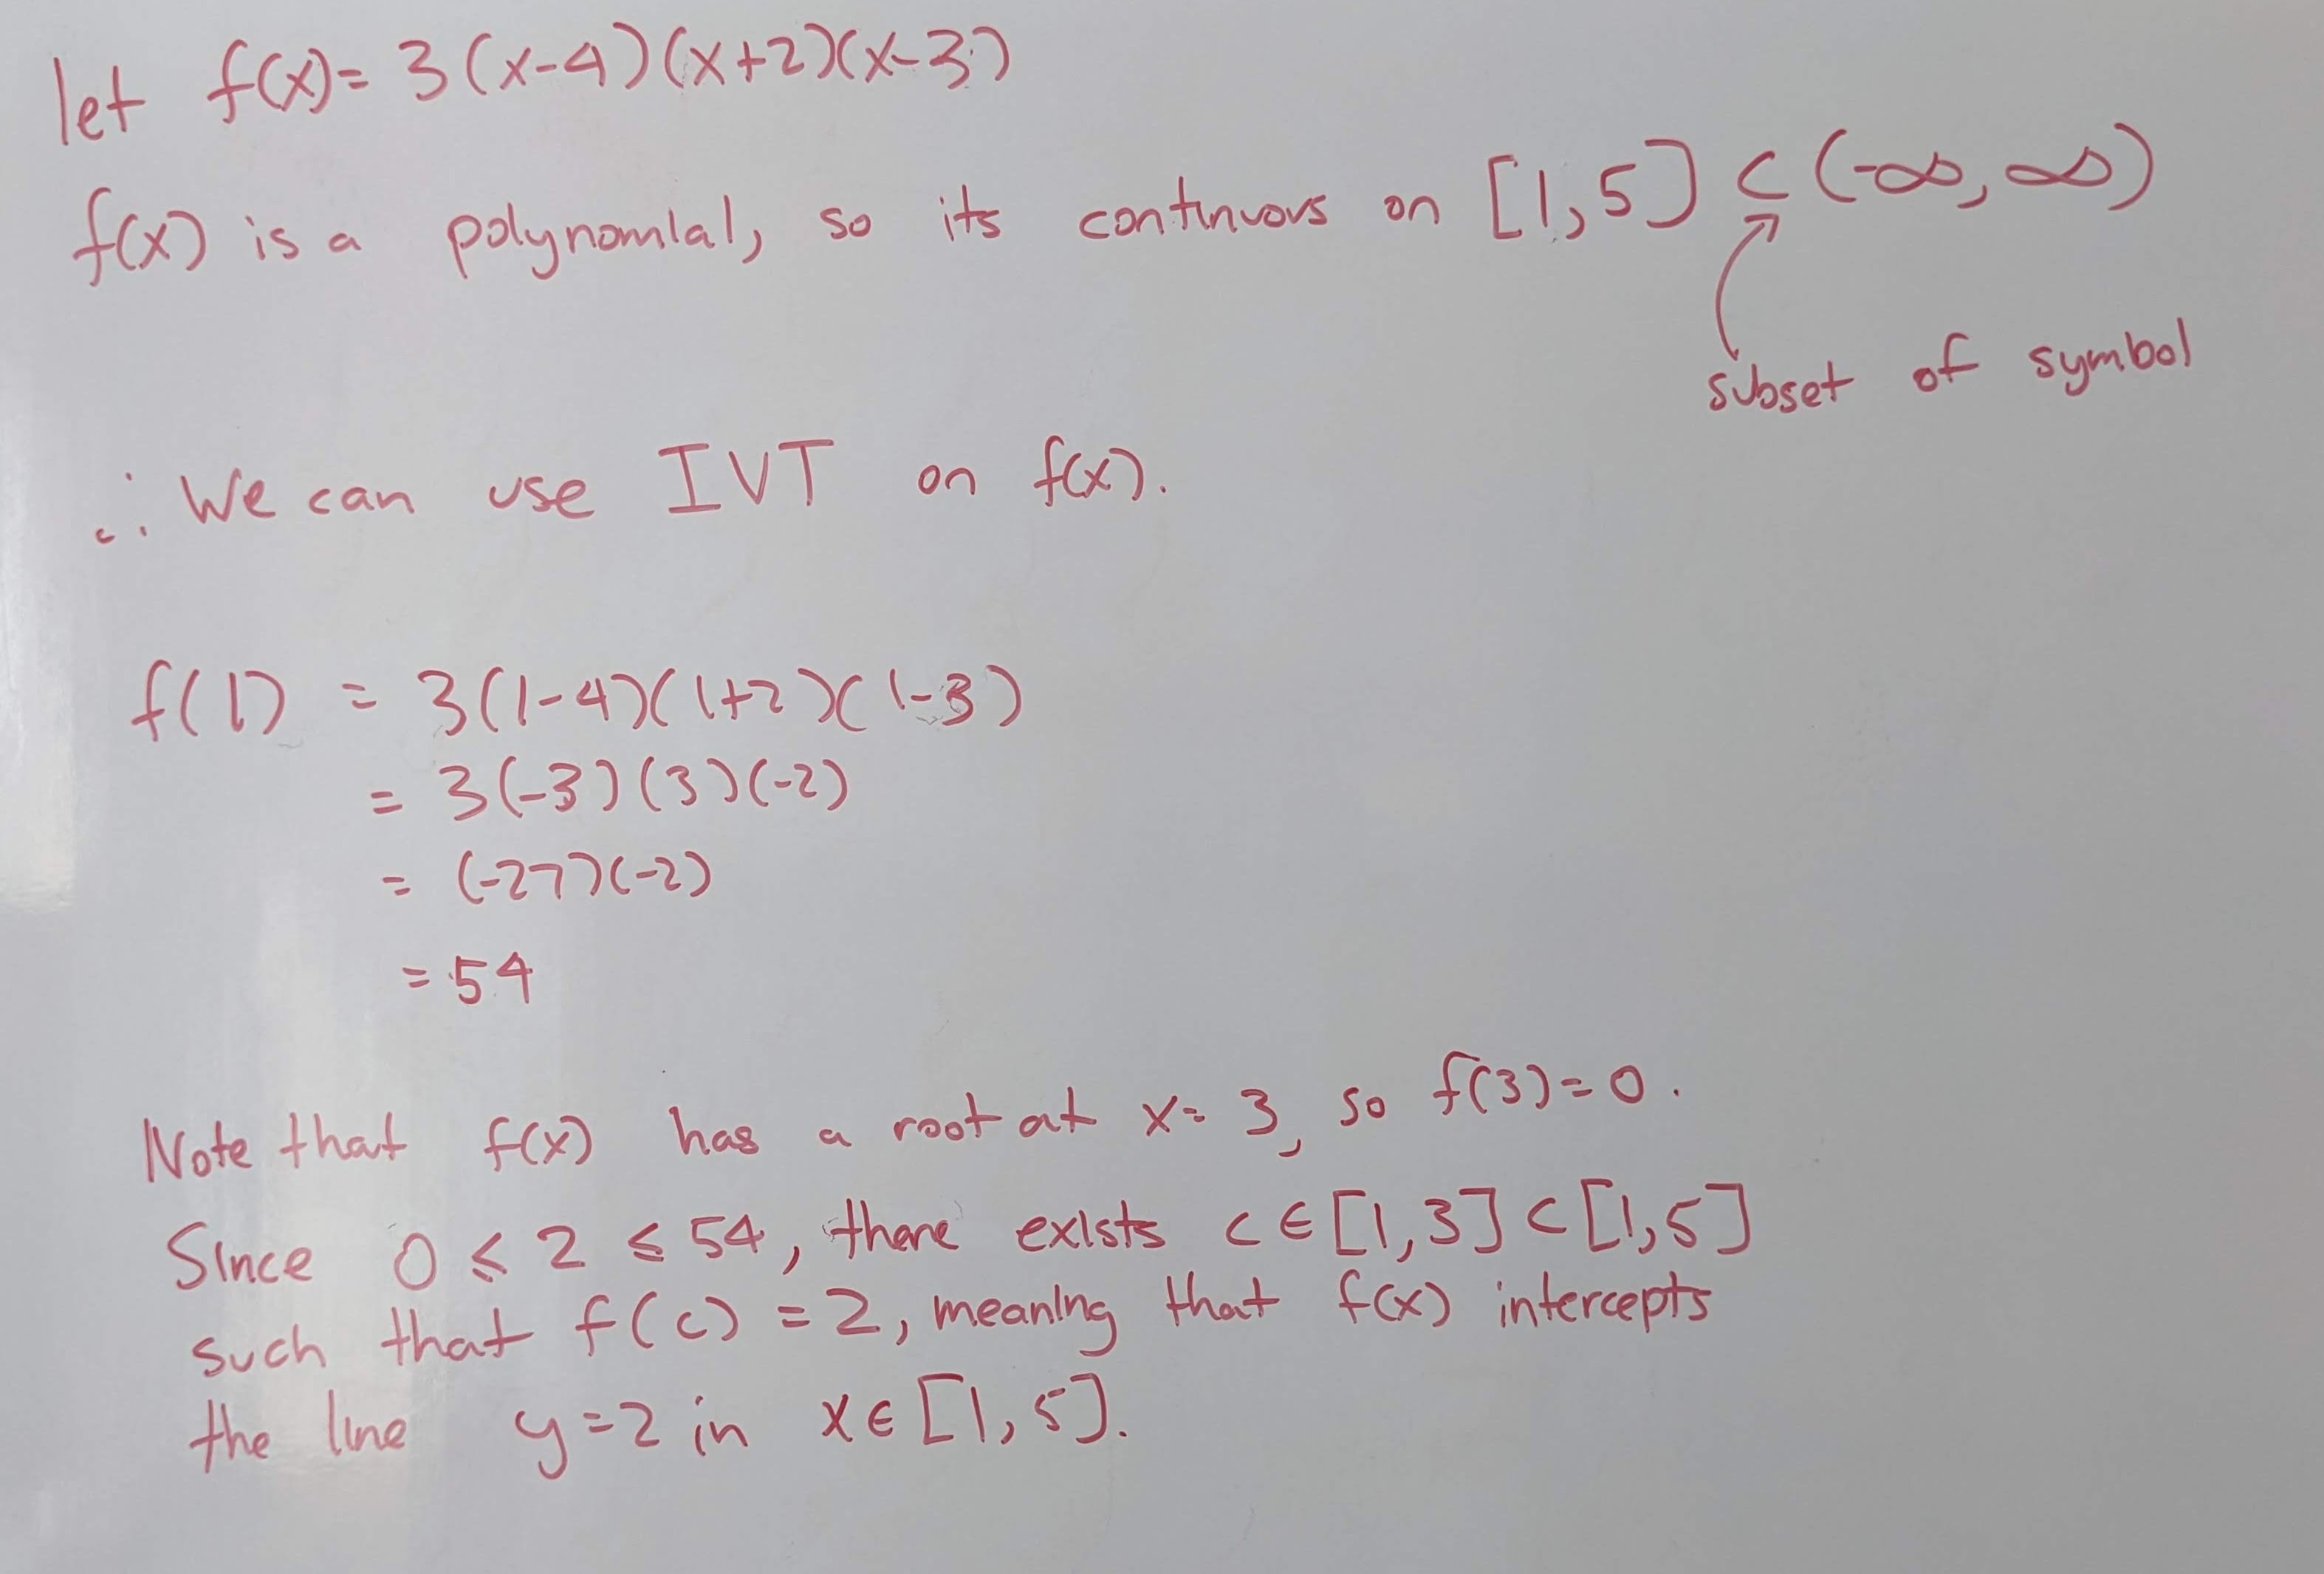 let f(x)= 3(x-4)(x+2)(x-3)
f(x) is a polynomial, so its continuous on [1,5] ⊂ (-∞, ∞)
subset of symbol
∴ We can use IVT on f(x).
f(1) = 3(1-4)(1+2)(1-3)
= 3(-3)(3)(-2)
= (-27)(-2)
= 54
Note that f(x) has a root at x= 3, so f(3)=0.
Since 0 ≤ 2 ≤ 54, there exists c ∈ [1,3] ⊂ [1,5]
such that f(c) = 2, meaning that f(x) intercepts
the line y=2 in x ∈ [1,5].